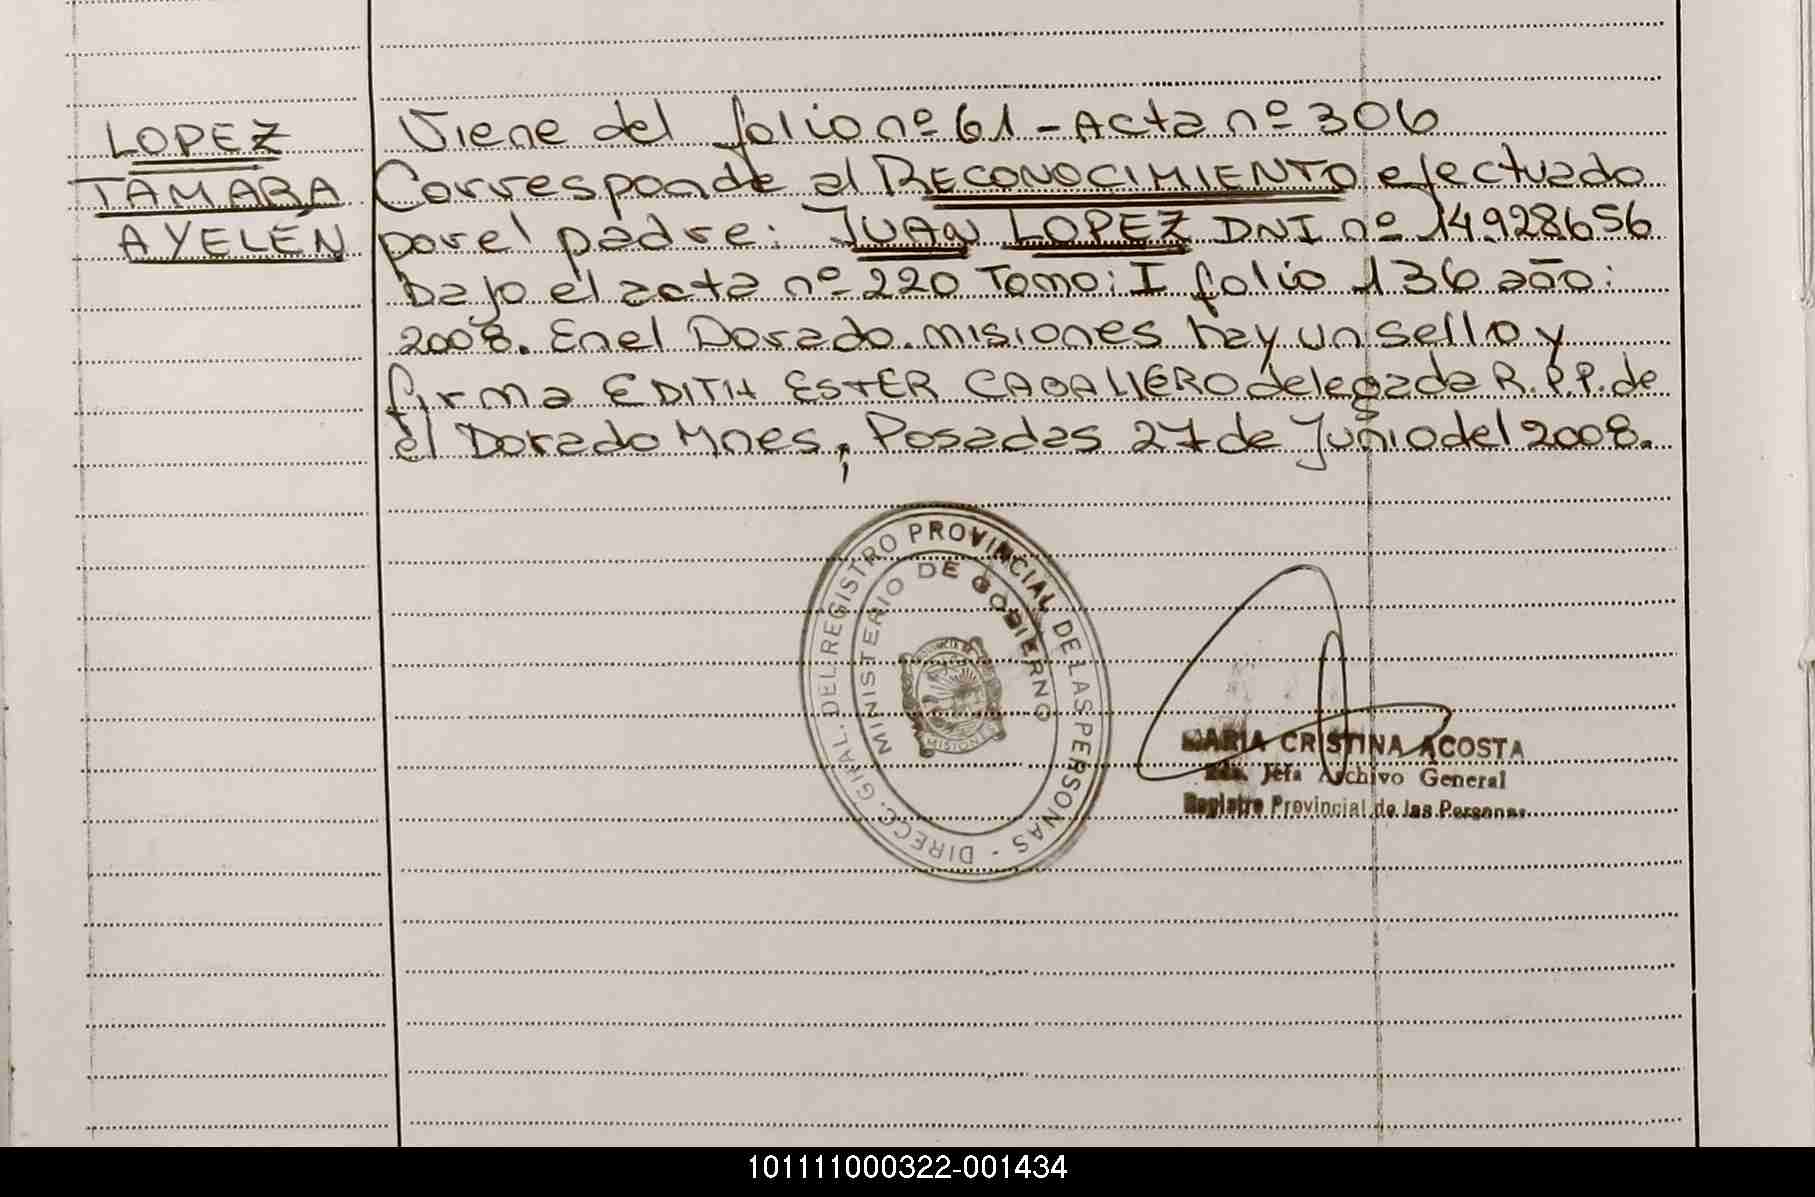 LOPEZ
TAMARA
AYELÉN
Viene del folio nº 61 - Acta nº 306
Corresponde al RECONOCIMIENTO efectuado
por el padre: JUAN LOPEZ DNI nº 14.928656
bajo el acta nº 220 Tomo: I folio 136 año:
2008. En el Dorado. misiones hay un sello y
firma EDITH ESTER CABALLERO delegada R.P.P. de
el Dorado Mnes; Posadas 27 de Junio del 2008.
DIRECC. GRAL. DEL REGISTRO PROVINCIAL DE LAS PERSONAS -
MINISTERIO DE GOBIERNO
PROVINCIA DE
MISIONES
MARIA CRISTINA ACOSTA
Jefa Archivo General
Registro Provincial de las Personas
101111000322-001434